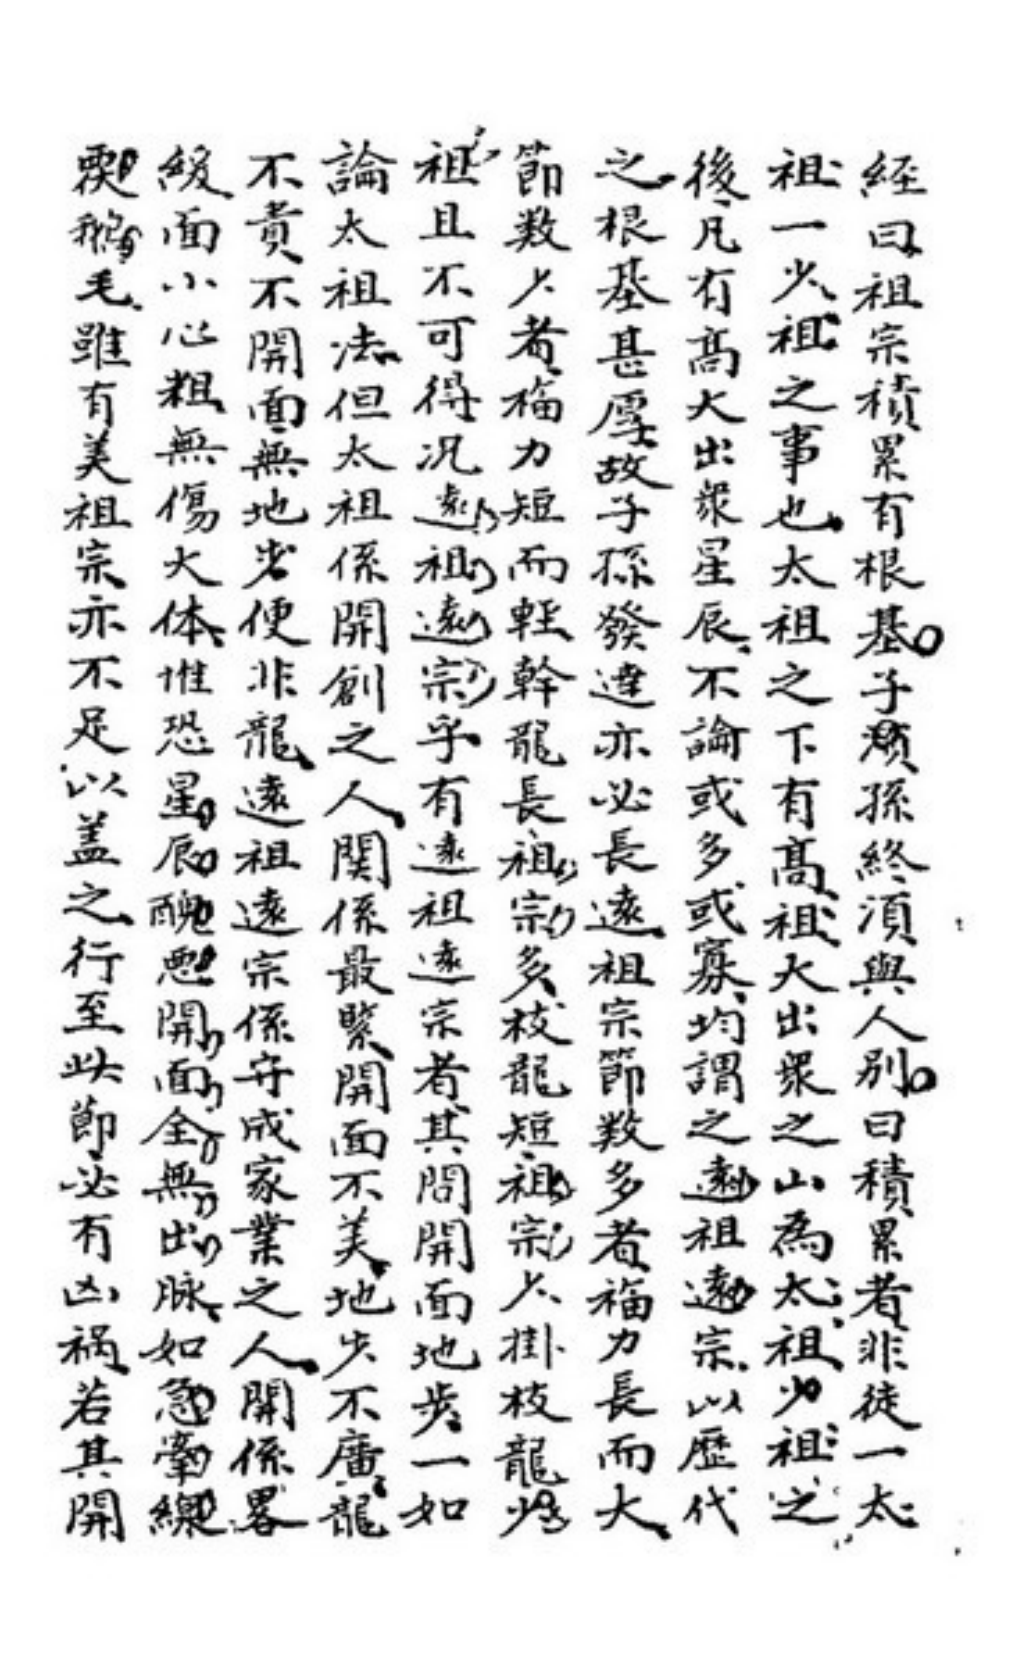 經曰祖宗積累有根基子須孫終須與人別曰積累者非徒一太
祖一少祖之事也太祖之下有高祖大出衆之山為太祖少祖之
後凡有高大出衆星辰不論或多或寡均謂之遠祖遠宗以歷代
之根基甚厚故子孫發達亦必長遠祖宗節数多者福力長而大
節数少者福力短而輕幹龍長祖宗多枝龍短祖宗少掛枝龍少
祖且不可得况遠祖遠宗乎有遠祖遠宗者其間開面地步一如
論太祖法但太祖係開創之人関係最緊開面不美地步不廣龍
不貴不開面無地步便非龍遠祖遠宗係守成家業之人関係畧
緩面小心粗無傷大体惟恐星辰醜惡開面全無出脉如急牽綫
毛雖有美祖宗亦不足以盖之行至此節必有凶禍若其開